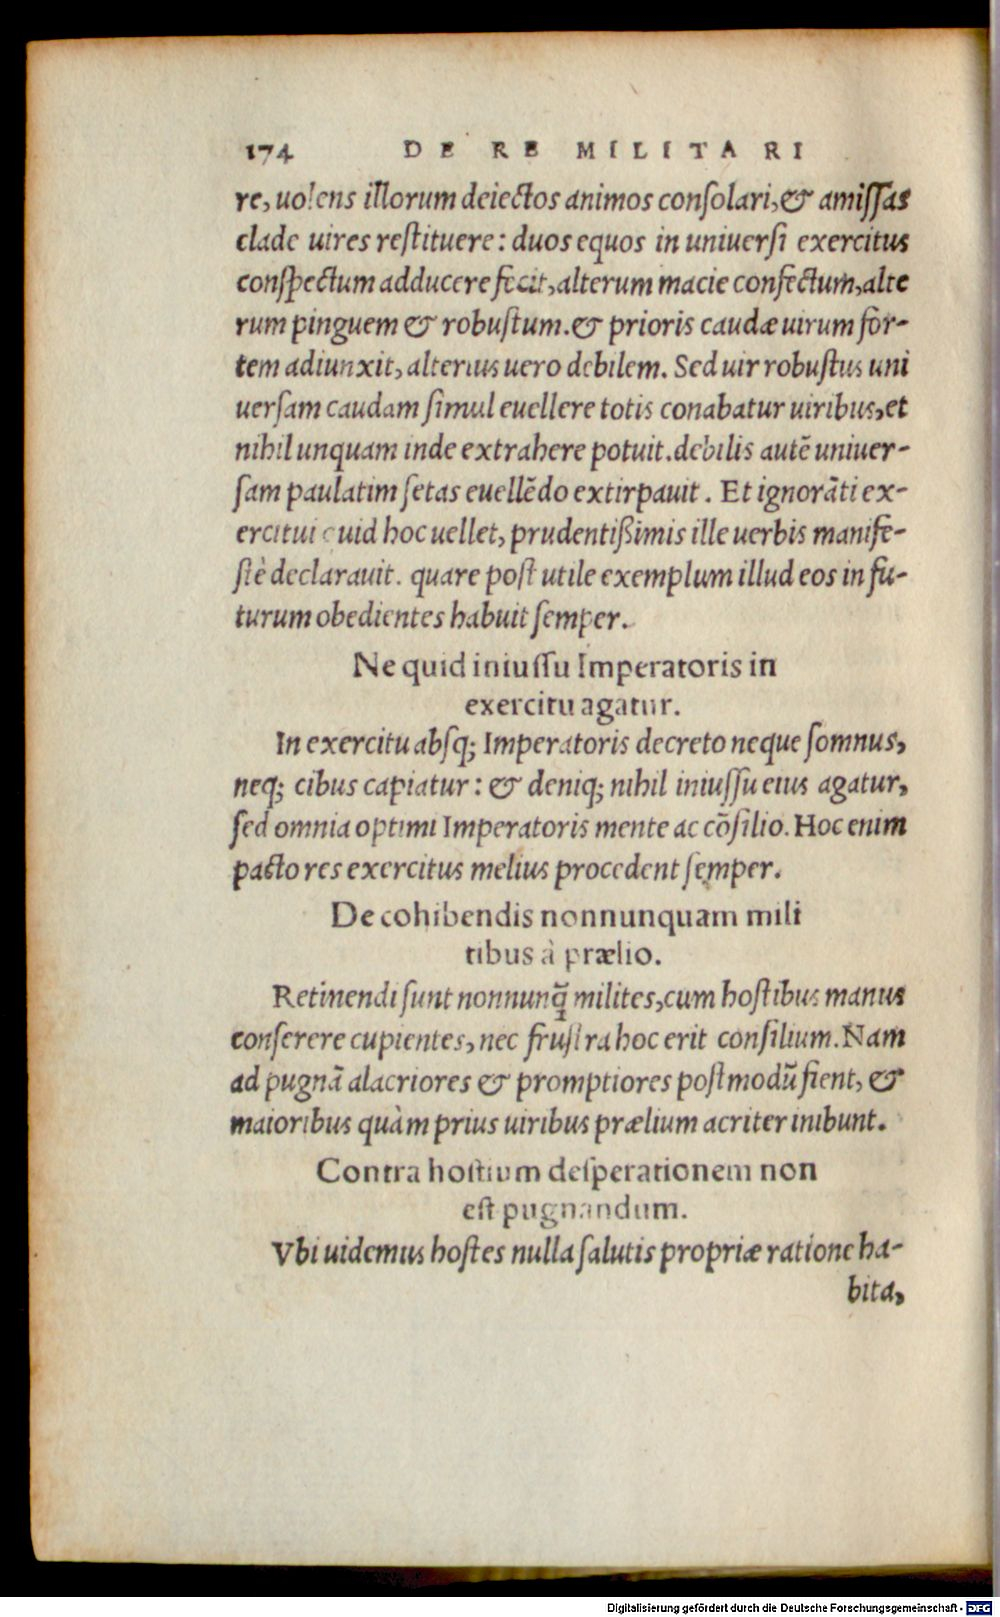 174 DE RE MILITARI
re, uolens illorum deiectos animos conſolari, & amiſſas
clade uires reſtituere: duos equos in uniuerſi exercitus
conſpectum adducere fecit, alterum macie confectum, alte
rum pinguem & robuſtum. & prioris caudæ uirum for-
tem adiunxit, alterius uero debilem. Sed uir robuſtus uni
uerſam caudam ſimul euellere totis conabatur uiribus, et
nihil unquam inde extrahere potuit. debilis autẽ uniuer-
ſam paulatim ſetas euellẽdo extirpauit. Et ignorãti ex-
ercitui quid hoc uellet, prudentißimis ille uerbis manife-
ſtè declarauit. quare poſt utile exemplum illud eos in fu-
turum obedientes habuit ſemper.
Ne quid iniuſſu Imperatoris in
exercitu agatur.
In exercitu abſq; Imperatoris decreto neque ſomnus,
neq; cibus capiatur: & deniq; nihil iniuſſu eius agatur,
ſed omnia optimi Imperatoris mente ac cõſilio. Hoc enim
pacto res exercitus melius procedent ſemper.
De cohibendis nonnunquam mili
tibus à prælio.
Retinendi ſunt nonnunq̃ milites, cum hoſtibus manus
conſerere cupientes, nec fruſtra hoc erit conſilium. Nam
ad pugnã alacriores & promptiores poſtmodũ fient, &
maioribus quàm prius uiribus prælium acriter inibunt.
Contra hoſtium deſperationem non
eſt pugnandum.
Vbi uidemus hoſtes nulla ſalutis propriæ ratione ha-
bita,
Digitalisierung gefördert durch die Deutsche Forschungsgemeinschaft - DFG